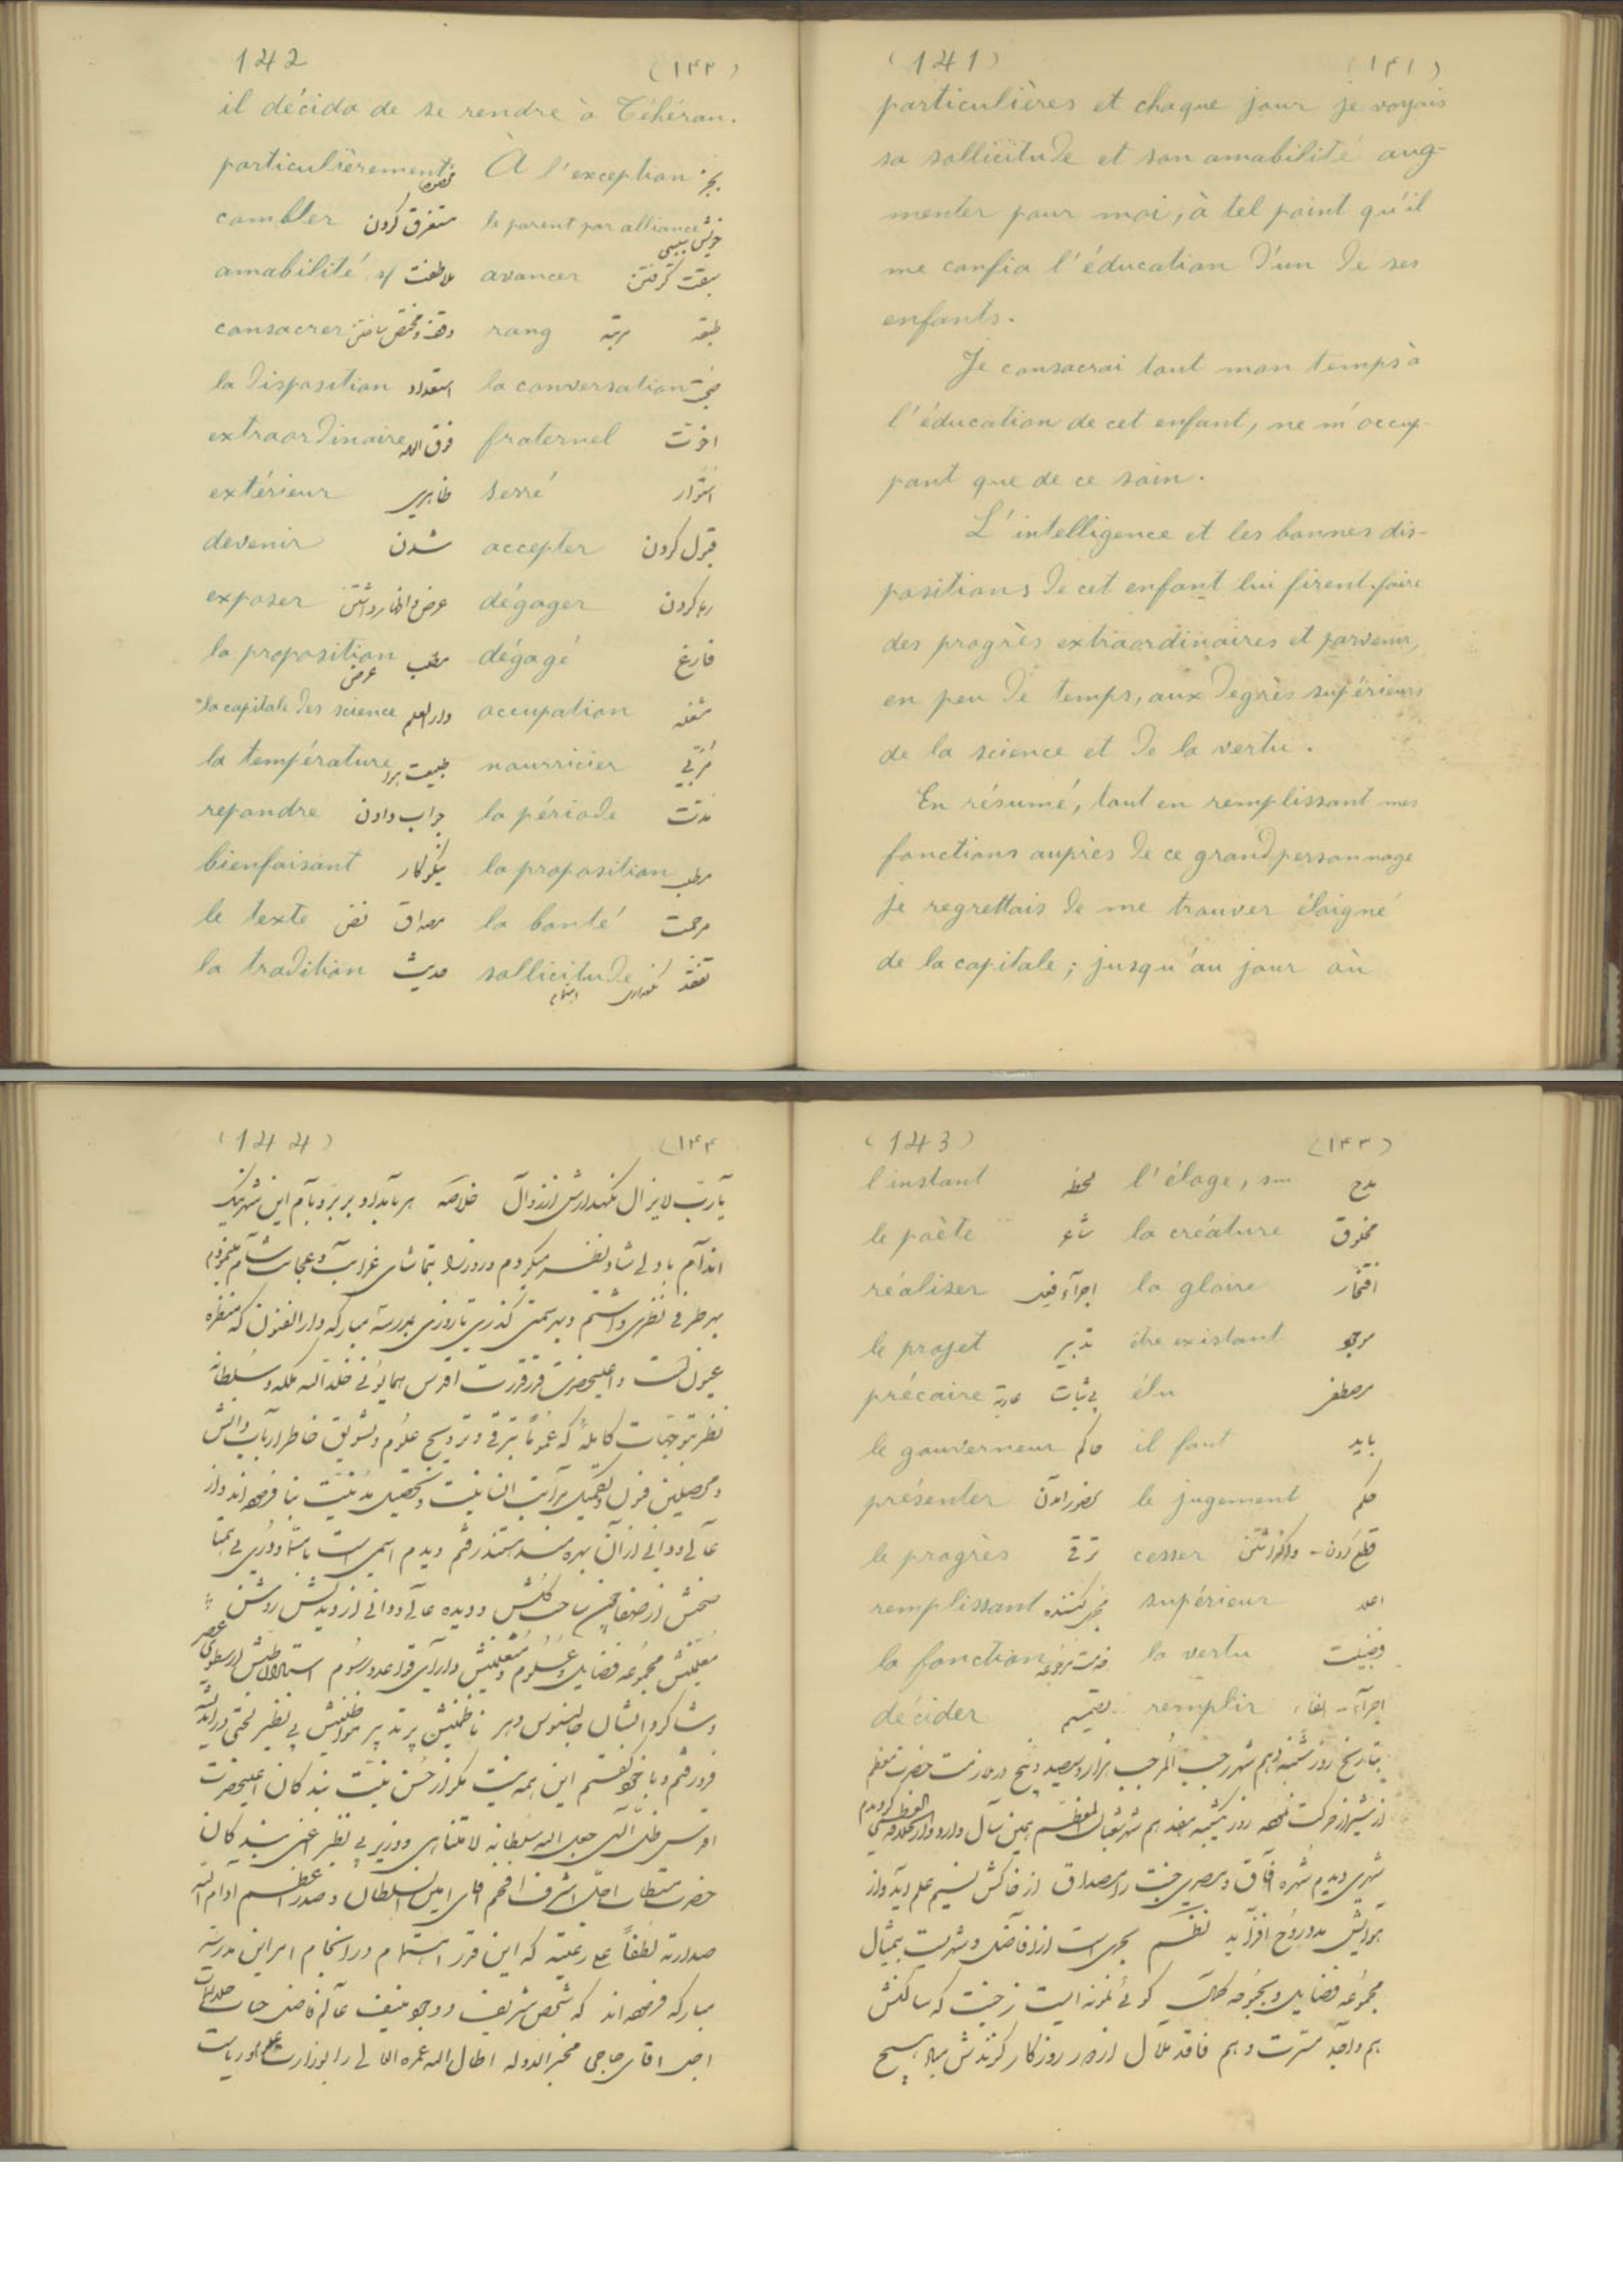 (141) (۱۴۱)
particulières et chaque jour je voyais
sa sollicitude et son amabilité aug-
menter pour moi, à tel point qu'il
me confia l'éducation d'un de ses
enfants.
Je consacrai tout mon temps à
l'éducation de cet enfant, ne m'occu-
pant que de ce soin.
L'intelligence et les bonnes dis-
positions de cet enfant lui firent faire
des progrès extraordinaires et parvenir,
en peu de temps, aux degrès supérieurs
de la science et de la vertu.
En résumé, tout en remplissant mes
fonctions auprès de ce grand personnage
je regrettais de me trouver éloigné
de la capitale; jusqu'au jour où
142 (۱۴۲)
il décida de se rendre à Téhéran.
particulièrement مخصوصا À l'exception بجز
combler مستغرق کردن le parent par alliance خویش سببی
amabilité sf ملاطفت avancer سبقت گرفتن
consacrer rang مرتبه طبقه
la disposition استعداد la conversation
extraordinaire فوق العاده fraternel اخوت
extérieur ظاهری serré استوار
devenir شدن accepter قبول کردن
exposer عرض و اظهار داشتن dégager رها کردن
la proposition مطلب عرض dégagé فارغ
la capitale des science دار العلم occupation مشغله
la température طبیعت هوا nourricier مربی
repondre جواب دادن la période مدت
bienfaisant نیکوکار la proposition مطلب
le texte مصداق نص la bonté مرحمت
la tradition حدیث sollicitude تفقد نگهداری
(143) (۱۴۳)
l'instant لحظه l'éloge, sm مدح
le poète شاعر la créature مخلوق
réaliser la gloire افتخار
le projet تدبیر être existant موجود
précaire بی ثبات عاریه élu مصطفی
le gouverneur حاکم il faut باید
présenter بحضور آمدن le jugement حکم
le progrès ترقی cesser قطع کردن - واگذاشتن
remplissant supérieur اعلا
la fonction la vertu فضیلت
décider تصمیم remplir اجراء - ایفاء
بتاریخ روز شنبه دهم شهر رجب المرجب هزار و سیصد و پنج در ملازمت حضرت معظم
از شیراز حرکت نموده روز یکشنبه هفدهم شهر شعبان المعظم همین سال وارد دارالخلافه کردیدم
شهری دیدم شهره آفاق و مصری جنت را مصداق از خاکش نسیم علم آید و از
هوایش مدد روح افزاید نظم بحری است از افاضل و شهریست بیمثال
مجموعه فضایل و بحبوحه کمال گوئی نمونه ایست ز جنت که ساکنش
هم واجد مسرت و هم فاقد ملال از دور روزگار گزندش مباد هیچ
(144) (۱۴۴)
یارب لایزال نگهدارش از زوال خلاصه هر بامداد بر بر و بام این شهر نیک
اندام با دلی شاد نظر میکردم و روز را بتماشای غرایب و عجایب شام مینمودم
بهر طرفی نظری داشتم و بهر سمتی گذری تا روزی بمدرسه مبارکه دار الفنون که منظره
عیون است و اعلیحضرت قدر قدرت اقدس همایونی خلد الله ملکه و سلطانه
نظر بتوجهات کامله که عموما بترقی و ترویج علوم و تشویق خاطر ارباب دانش
و محصلین فنون و تکمیل مراتب انسانیت و تحصیل مدنیت بنا فرموده اند و از
عالی و دانی از آن بهره مند هستند رفتم دیدم اسمی است با مسما و دری بی همتا
معلمینش مجموعه فضایل و علوم و متعلمینش دارای قواعد و رسوم
و شاگردانشان جالینوس دهر ناظمینش پر تدبیر مواظبینش بی نظیر
فرو رفتم و با خود گفتم این همه نیست مگر از حسن نیت بندگان اعلیحضرت
اقدس ظل اللهی جعل الله سلطانه لا متناهی و وزیر بی نظیر اعنی بندگان
حضرت مستطاب اجل اشرف افخم آقای امین السلطان و صدر اعظم ادام الله
صدارته لطفا علی رعیته که این قدر اهتمام در انجام امر این مدرسه
مبارکه فرموده اند که شخص شریف و وجود منیف عالم فاضل جناب جلالتمآب
اجل اقای حاجی مخبر الدوله اطال الله عمره العالی را بوزارت علوم و ریاست